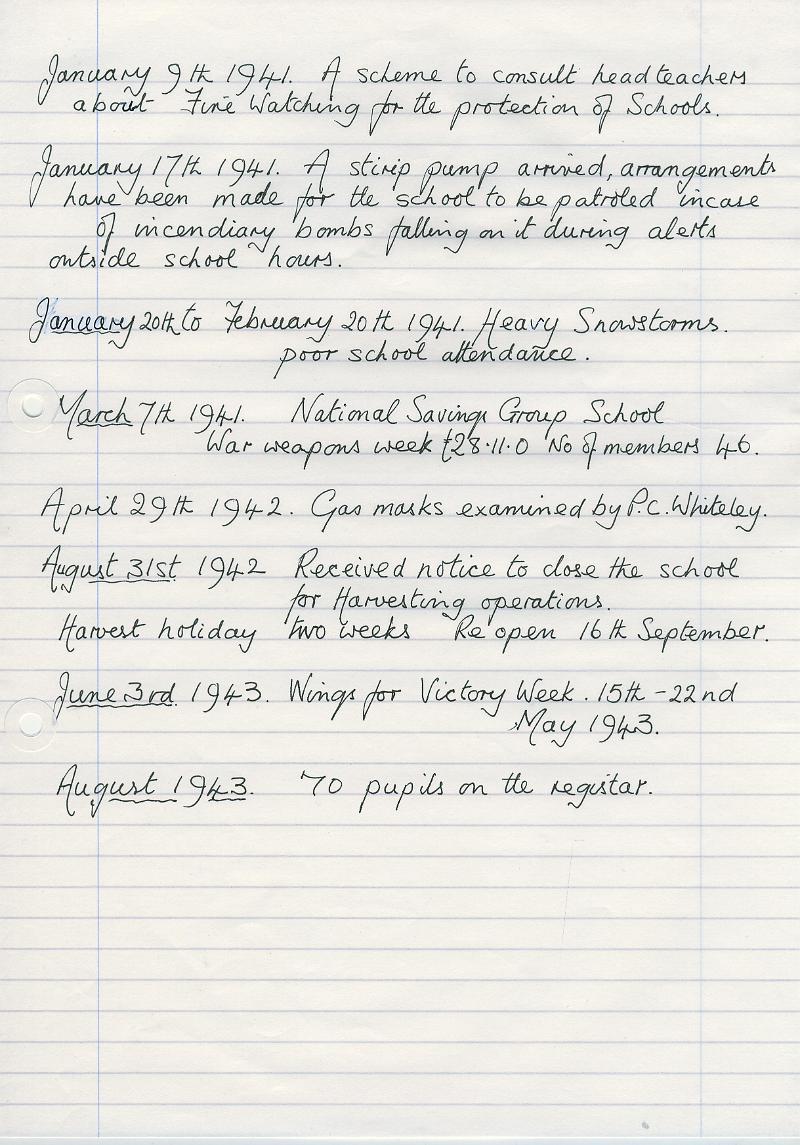 January 9th 1941. A scheme to consult headteachers
about Fire Watching for the protection of Schools.
January 17th 1941. A stirip pump arrived, arrangements
have been made for the school to be patroled incase
of incendiary bombs falling on it during alerts
outside school hours.
January 20th to February 20th 1941. Heavy Snowstorms.
poor school attendance.
March 7th 1941. National Savings Group School
War weapons week £28.11.0 No of members 46.
April 29th 1942. Gas masks examined by P.C. Whiteley.
August 31st 1942 Received notice to close the school
for Harvesting operations.
Harvest holiday two weeks Re open 16th September.
June 3rd 1943. Wings for Victory Week. 15th - 22nd
May 1943.
August 1943. 70 pupils on the registar.